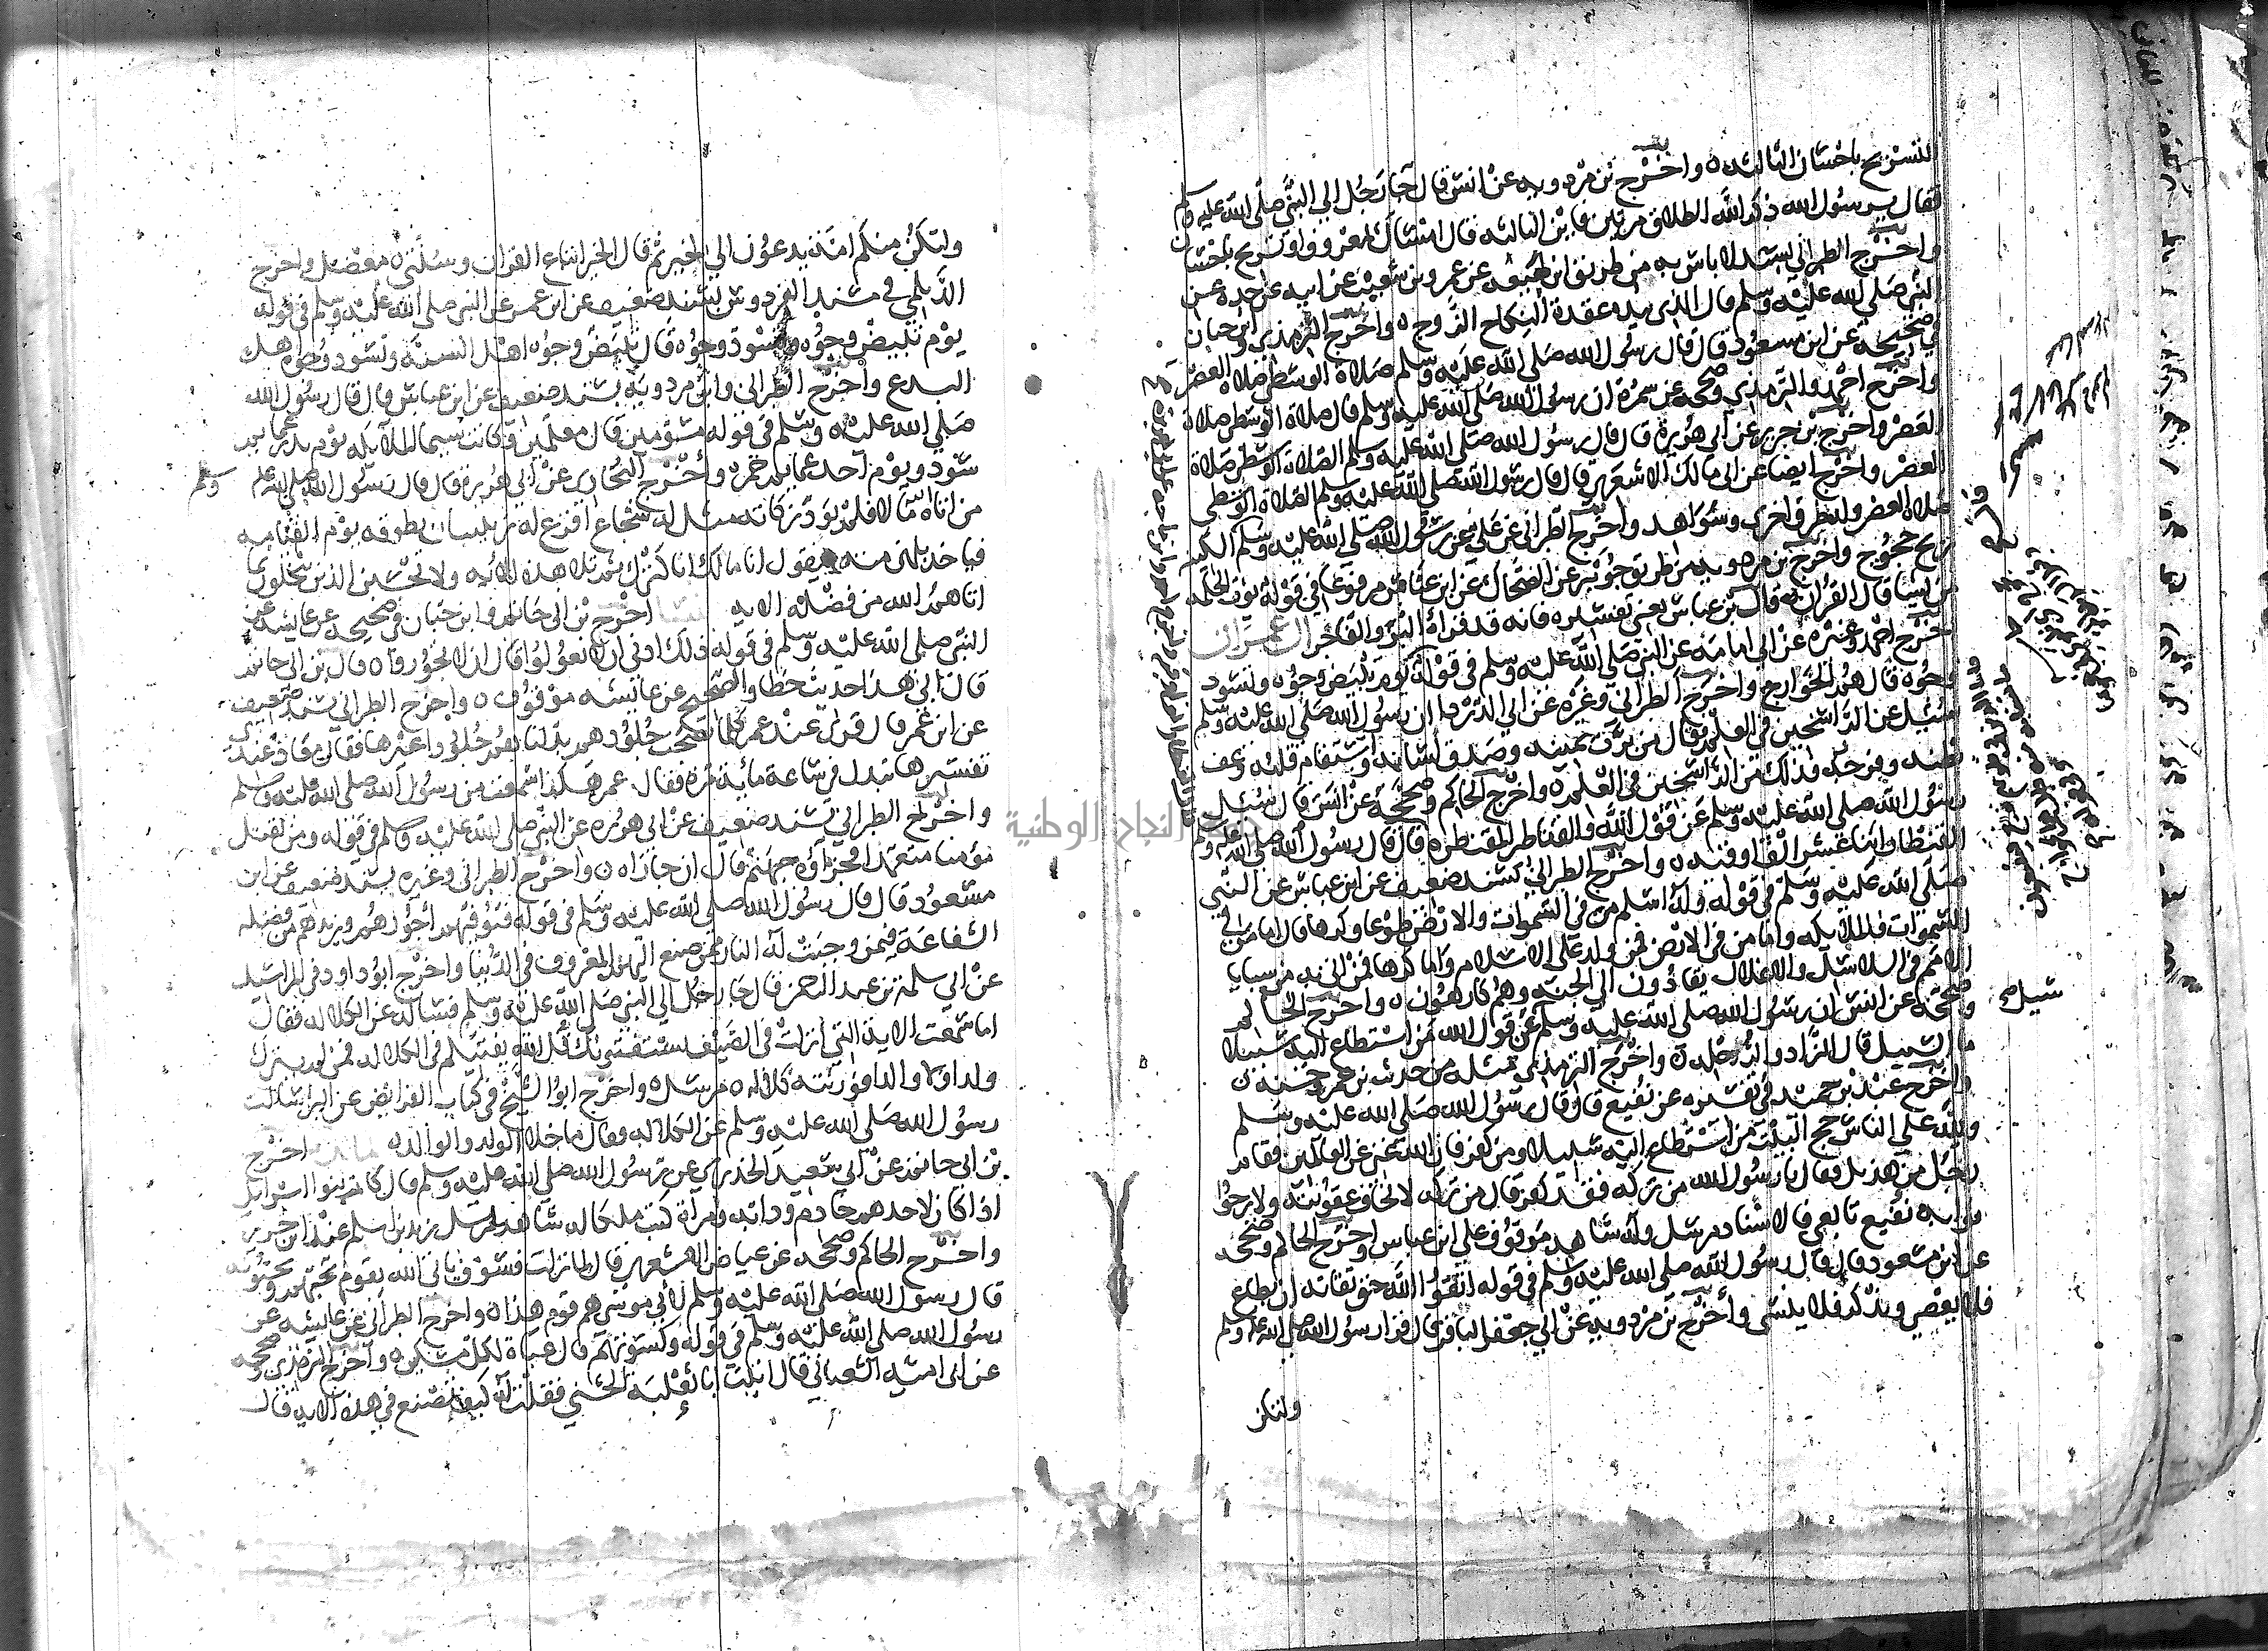 التسريح باحسان الثالثه ٥ واخرج بن مردويه عن انس قال جا رجل الي النبي صلي الله عليه وسلم
فقال يرسول الله ذكر الله الطلاق مرتين فاين الثالثه قال امساك بمعروف او تسريح باحسان
واخرج الطبراني بسند لا باس به من طريق ابن لهيعه عن عمرو بن شعيب عن ابيه عن جده عن
النبي صلي الله عليه وسلم قال الذي بيده عقدة النكاح الزوج ٥ واخرج الترمذي وابن حبان
في صحيحه عن ابن مسعود قال قال رسول الله صلي الله عليه وسلم صلاة الوسطي صلاة العصر
واخرج احمد والترمذي وصححه عن سمرة ان رسول الله صلي الله عليه وسلم قال صلاة الوسطي صلاة
العصر واخرج بن جرير عن ابي هريرة قال قال رسول الله صلي الله عليه وسلم الصلاة الوسطي صلاة
العصر واخرج ايضا عن ابي مالك الاشعري قال قال رسول الله صلي الله عليه وسلم الصلاة الوسطي
صلاة العصر وله طرق اخري وشواهد واخرج الطبراني عن علي عن رسول الله صلي الله عليه وسلم السكينه
ريح خجوج واخرج بن مردويه من طريق جويبر عن الضحاك عن ابن عباس مرفوعا في قوله يوتي الحكمه
من يشا قال القران قال بن عباس يعني تفسيره فانه قد قراه البر والفاجر ال عمران
اخرج احمد وغيره عن ابي امامه عن النبي صلي الله عليه وسلم في قوله يوم تبيض وجوه وتسود
وجوه قال هم الخوارج واخرج الطبراني وغيره عن ابي الدردا ان رسول الله صلي الله عليه وسلم
سئل عن الراسخين في العلم فقال من برت يمينه وصدق لسانه واستقام قلبه وعف
بطنه وفرجه فذلك من الراسخين في العلم ٥ واخرج الحاكم وصححه عن انس قال سئل
رسول الله صلي الله عليه وسلم عن قول الله والقناطير المقنطره قال
القنطار الف اوقيه ٥ واخرج الطبراني بسند ضعيف عن ابن عباس عن النبي
صلي الله عليه وسلم في قوله وله اسلم من في السموات والارض طوعا وكرها قال اما من في
السموات فالملايكه واما من في الارض فمن ولد علي الاسلام واما كرها فمن اتي به من سبايا
الامم في السلاسل والاغلال يقادون الي الجنه وهم كارهون ٥ واخرج الحاكم
وصححه عن انس ان رسول الله صلي الله عليه وسلم سئل عن قول الله من استطاع اليه سبيلا
ما السبيل قال الزاد والراحله ٥ واخرج الترمذي مثله من حديث بن عمر وحسنه ٥
واخرج عبد بن حميد في تفسيره عن نفيع قال قال رسول الله صلي الله عليه وسلم
ولله علي الناس حج البيت من استطاع اليه سبيلا ومن كفر فان الله غني عن العالمين فقام
رجل من هذيل فقال يا رسول الله من تركه فقد كفر قال من تركه لا يخاف عقوبته ولا يرجوا
ثوابه نفيع تابعي فالاسناد مرسل وله شاهد موقوف علي ابن عباس واخرج الحاكم وصححه
عن ابن مسعود قال قال رسول الله صلي الله عليه وسلم في قوله اتقوا الله حق تقاته ان يطاع
فلا يعصي ويذكر فلا ينسى واخرج بن مردويه عن ابي جعفر الباقر قال قرا رسول الله صلي الله عليه وسلم
ولتكن
ولتكن منكم امة يدعون الي الخير ثم قال الخير اتباع القران وسنتي ٥ معضل واخرج
الديلمي في مسند الفردوس بسند ضعيف عن ابن عمر عن النبي صلي الله عليه وسلم في قوله
يوم تبيض وجوه وتسود وجوه قال تبيض وجوه اهل السنه وتسود وجوه اهل
البدع واخرج الطبراني وابن مردويه بسند ضعيف عن ابن عباس قال قال رسول الله
صلي الله عليه وسلم في قوله مسومين قال معلمين وكانت سيما الملايكه يوم بدر عمايم
سود ويوم احد عمايم حمر ٥ واخرج البخاري عن ابي هريرة قال قال رسول الله صلي الله عليه وسلم
من اتاه الله مالا فلم يود زكاته مثل له شجاع اقرع له زبيبتان يطوقه يوم القيامه
فياخذ بلهزمتيه يقول انا مالك انا كنزك ثم تلا هذه الايه ولا تحسبن الذين يبخلون بما
اتاهم الله من فضله الايه النسا اخرج بن ابي حاتم وابن حبان في صحيحه عن عايشه عن
النبي صلي الله عليه وسلم في قوله ذلك ادني ان لا تعولوا قال ان لا تجوروا ٥ قال بن ابي حاتم
قال ابي هذا حديث خطا والصحيح عن عايشه موقوف ٥ واخرج الطبراني بسند ضعيف
عن ابن عمر قال قري عند عمر كلما نضجت جلودهم بدلناهم جلودا غيرها فقال معاذ عندي
تفسيرها تبدل في ساعة ماية مرة فقال عمر هكذا سمعت من رسول الله صلي الله عليه وسلم
واخرج الطبراني بسند ضعيف عن ابي هريره عن النبي صلي الله عليه وسلم في قوله ومن يقتل
مؤمنا متعمدا فجزاؤه جهنم قال ان جازاه ٥ واخرج الطبراني وغيره بسند ضعيف عن ابن
مسعود قال قال رسول الله صلي الله عليه وسلم في قوله فنوفيهم اجورهم ويزيدهم من فضله
الشفاعة فيمن وجبت له النار ممن صنع اليهم المعروف في الدنيا واخرج ابو داود في المراسيل
عن ابي سلمة بن عبد الرحمن قال جا رجل الي النبي صلي الله عليه وسلم فساله عن الكلاله فقال
اما سمعت الايه التي انزلت في الصيف يستفتونك قل الله يفتيكم في الكلاله فمن لم يترك
ولدا ولا والدا فورثته كلاله ٥ مرسل ٥ واخرج ابو الشيخ في كتاب الفرائض عن البرا سالت
رسول الله صلي الله عليه وسلم عن الكلاله فقال ما خلا الولد والوالد ٥ اخرج
بن ابي حاتم عن ابي سعيد الخدري عن رسول الله صلي الله عليه وسلم قال كانت بنوا اسرايل
اذا كان لاحدهم خادم ودابه وامرأة كتب ملكا له شاهد مرسل زيد بن اسلم عند ابن جرير
واخرج الحاكم وصححه عن عياض الاشعري قال لما نزلت فسوف ياتي الله بقوم يحبهم ويحبونه
قال رسول الله صلي الله عليه وسلم لابي موسي هم قوم هذا ٥ واخرج الطبراني عن عايشه عن
رسول الله صلي الله عليه وسلم في قوله وكسوتهم قال عباة لكل مسكين ٥ واخرج الترمذي وصححه
عن ابي اميه الشعباني قال اتيت ابا ثعلبة الخشني فقلت له كيف تصنع في هذه الايه قال
جامعة النجاح الوطنية